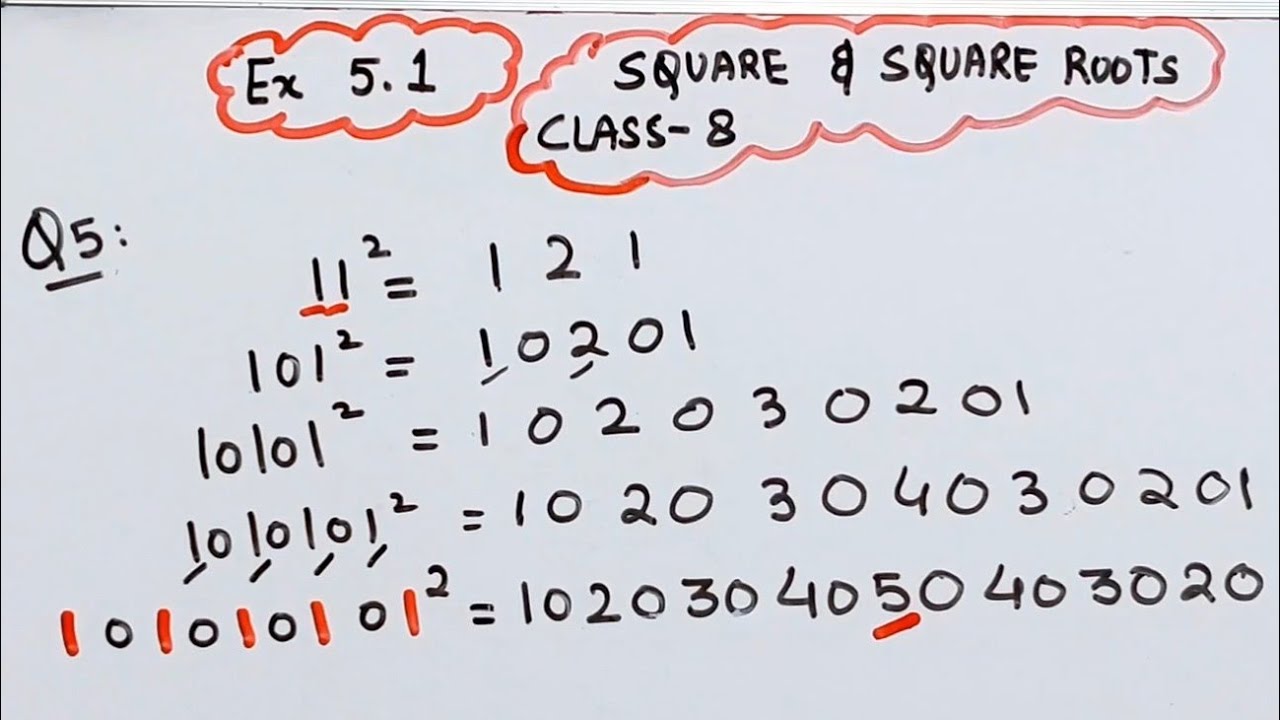 Ex 5.1
SQUARE & SQUARE ROOTS
CLASS-8
Q5:
11² = 1 2 1
101² = 10201
10101² = 1 0 2 0 3 0 2 0 1
1010101² = 10 20 3 0 4 0 3 0 2 0 1
101010101² = 10 20 30 40 50 40 30 20